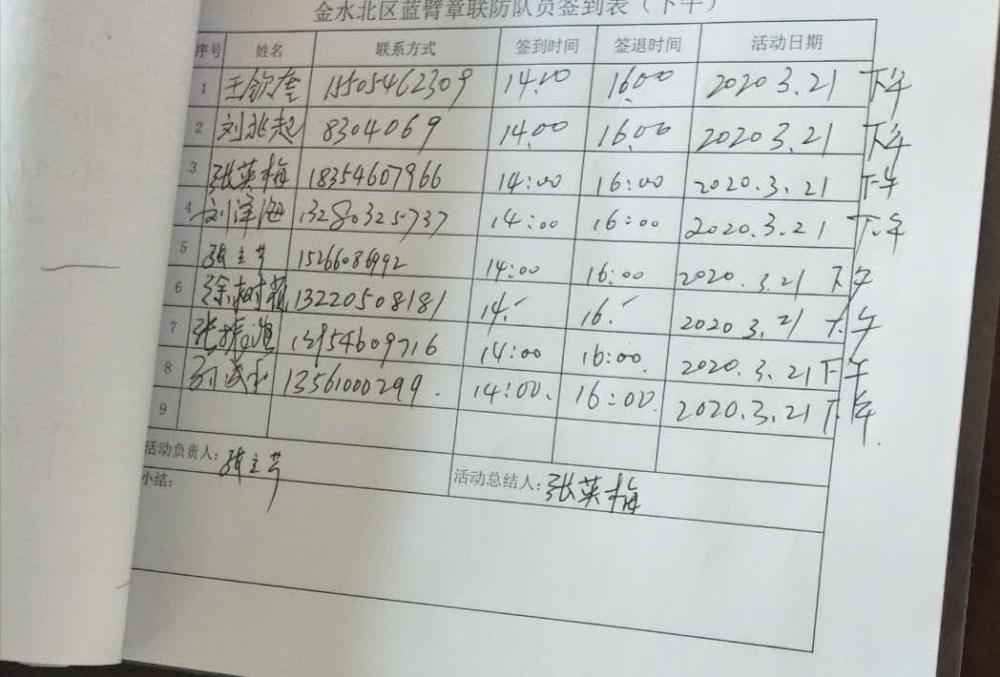 金水北区蓝臂章联防队员签到表（下午）
序号 姓名 联系方式 签到时间 签退时间 活动日期
1 王钦奎 15505462309 14.00 16.00 2020 3.21 下午
2 刘兆起 8304069 14.00 16.00 2020 3.21 下午
3 张英梅 18354607966 14:00 16:00 2020.3.21 下午
4 刘泽海 13280325737 14:00 16:00 2020.3.21 下午
5 张立芳 15266086992 14:00 16:00 2020.3.21 下午
6 徐树 13220508181 14. 16. 2020 3.21 下午
7 张振 13954609716 14:00 16:00. 2020.3.21 下午
8 13561000299. 14:00. 16:00. 2020.3.21 下午.
9
活动负责人: 张立芳 活动总结人: 张英梅
小结: